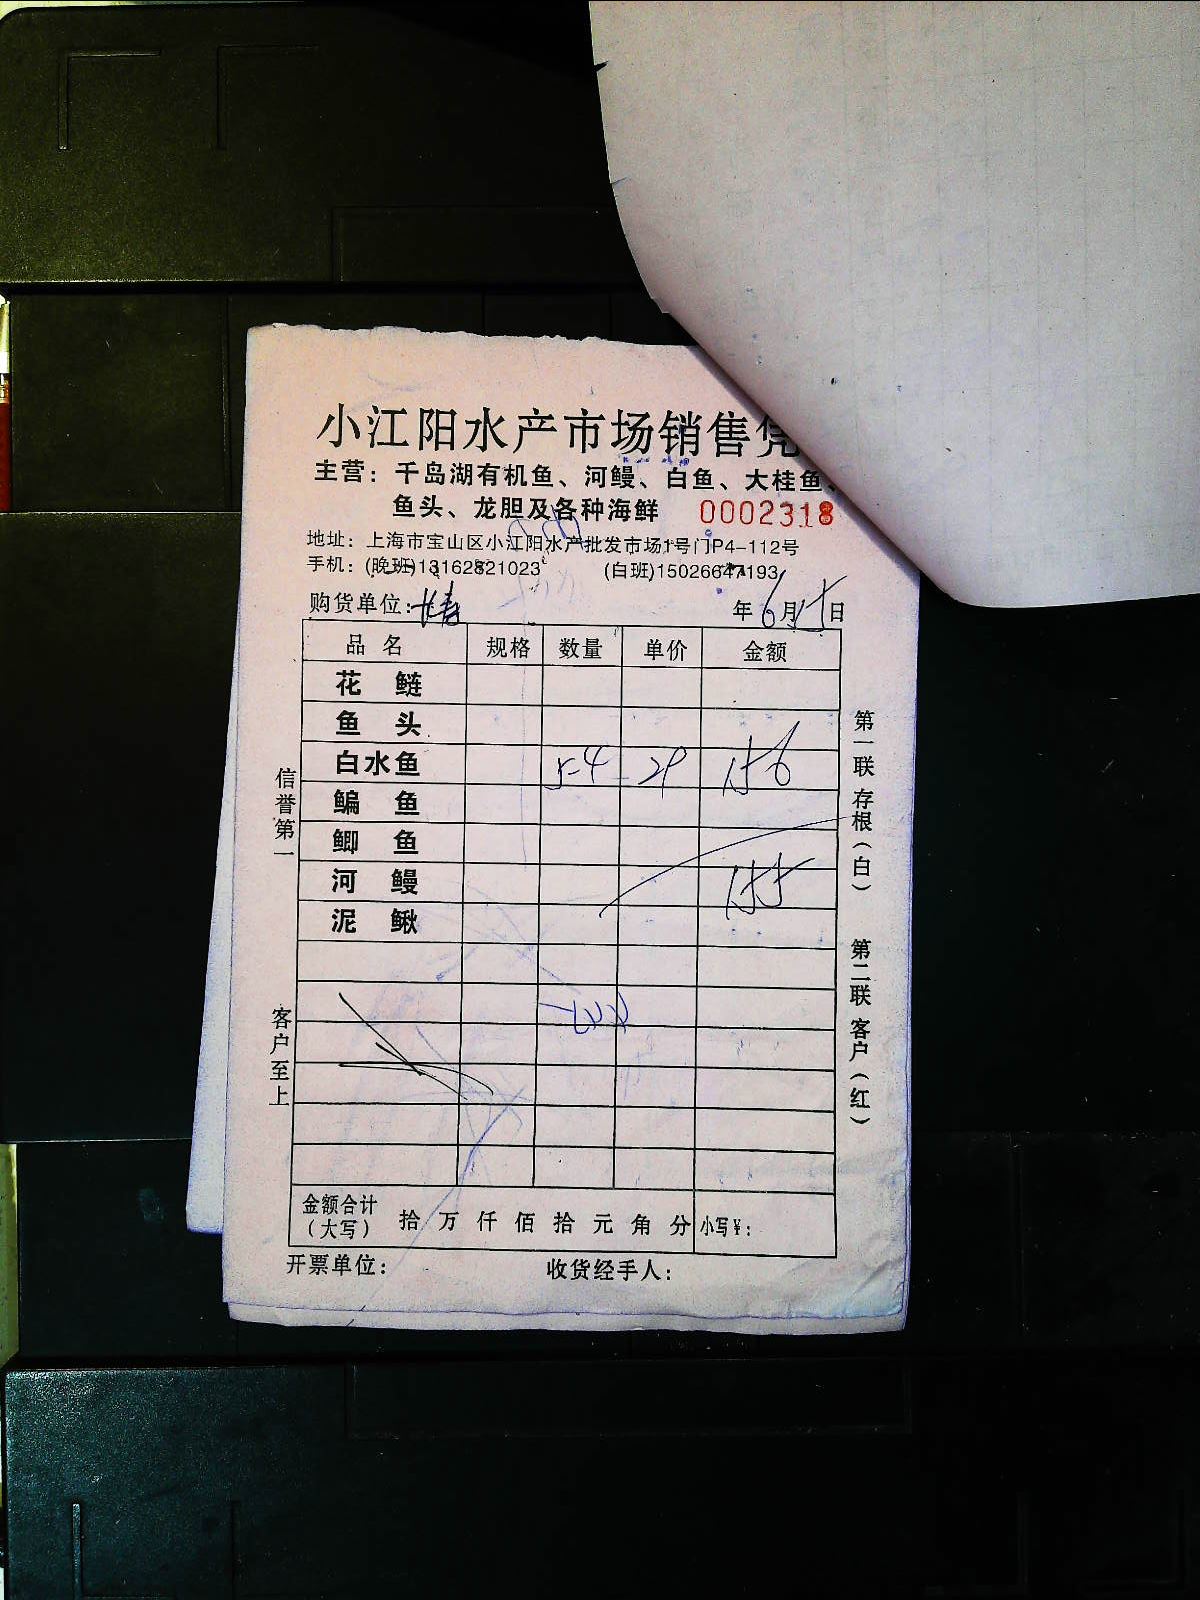 小江阳水产市场销售凭
主营：千岛湖有机鱼、河鳗、白鱼、大桂鱼、
鱼头、龙胆及各种海鲜 0002318
地址：上海市宝山区小江阳水产批发市场1号门P4-112号
手机：(晚班)13162821023 (白班)15026647193
购货单位： 年6月15日
品名 规格 数量 单价 金额
花鲢
鱼头
白水鱼 5-4 29 156
鳊鱼
鲫鱼
河鳗 155
泥鳅
金额合计（大写） 拾万仟佰拾元角分 小写¥：
开票单位： 收货经手人：
信誉第一
客户至上
第一联 存根（白）
第二联 客户（红）